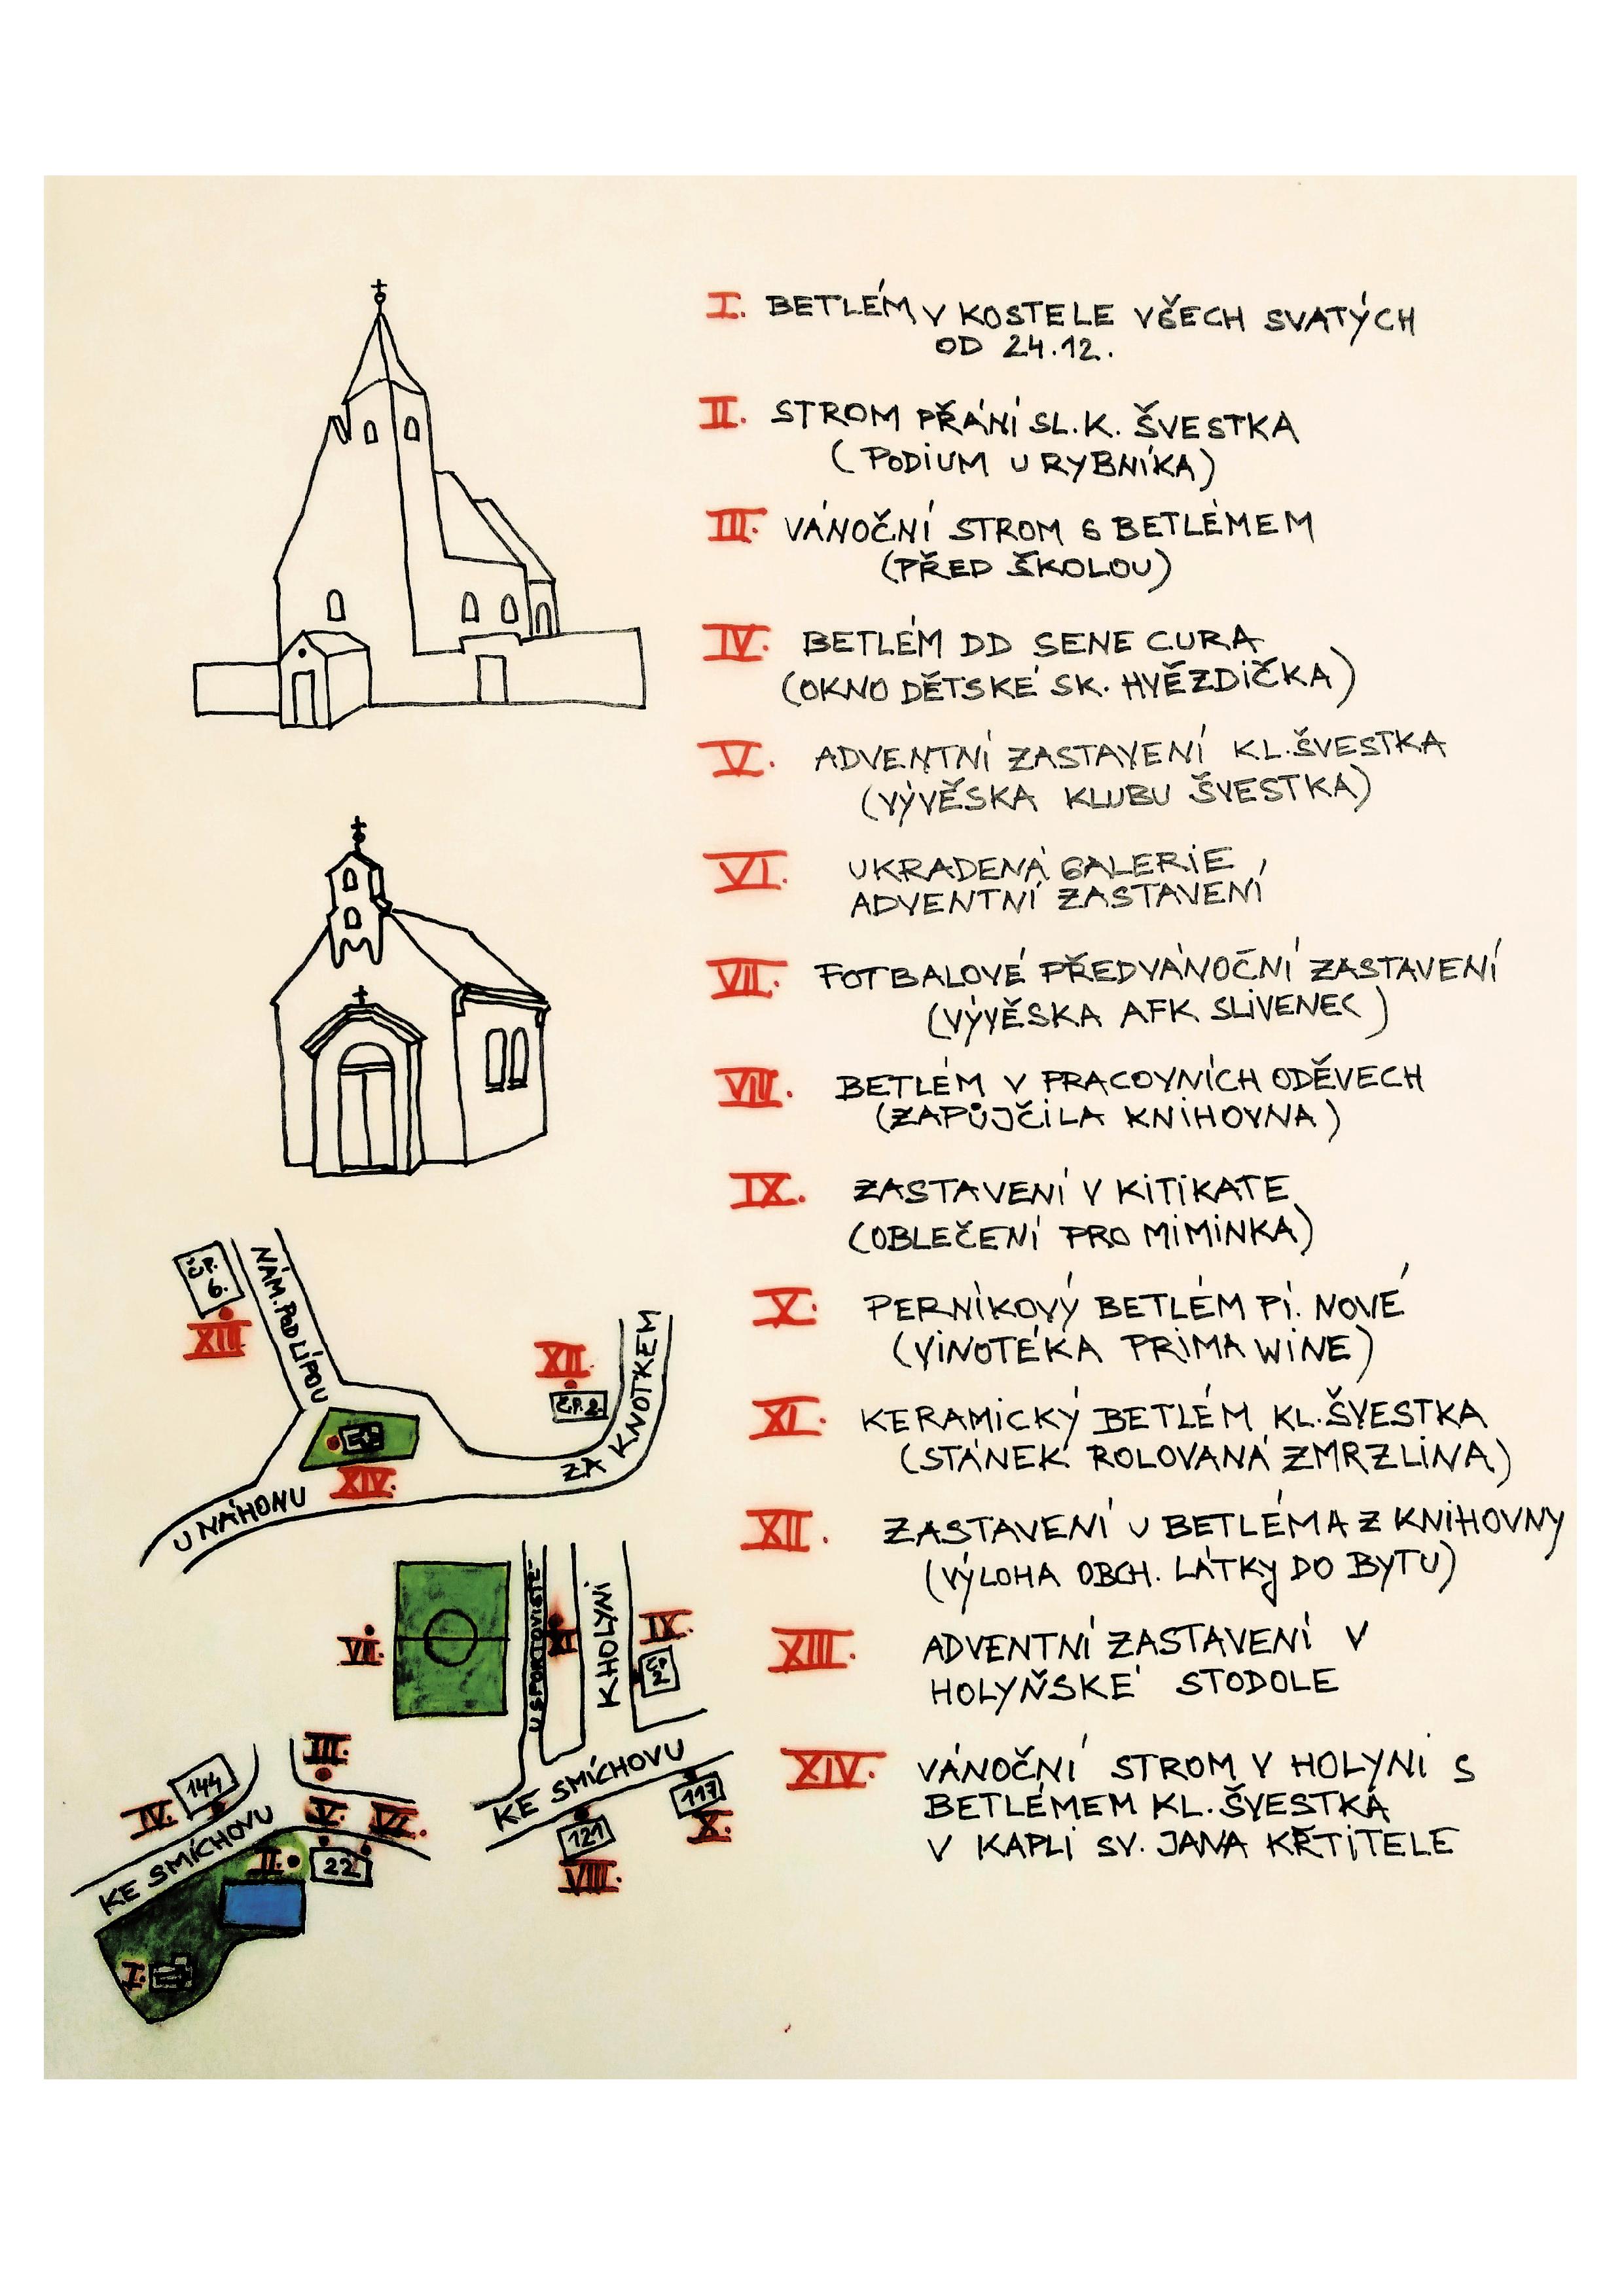 I. BETLÉM V KOSTELE VŠECH SVATÝCH
OD 24.12.
II. STROM PŘÁNÍ SL. K. ŠVESTKA
(PODIUM U RYBNÍKA)
III. VÁNOČNÍ STROM S BETLÉMEM
(PŘED ŠKOLOU)
IV. BETLÉM DD SENE CURA
(OKNO DĚTSKÉ SK. HVĚZDIČKA)
V. ADVENTNÍ ZASTAVENÍ KL. ŠVESTKA
(VÝVĚSKA KLUBU ŠVESTKA)
VI. UKRADENÁ GALERIE,
ADVENTNÍ ZASTAVENÍ
VII. FOTBALOVÉ PŘEDVÁNOČNÍ ZASTAVENÍ
(VÝVĚSKA AFK SLIVENEC)
VIII. BETLÉM V PRACOVNÍCH ODĚVECH
(ZAPŮJČILA KNIHOVNA)
IX. ZASTAVENÍ V KITIKATE
(OBLEČENÍ PRO MIMINKA)
X. PERNÍKOVÝ BETLÉM PÍ. NOVÉ
(VINOTÉKA PRIMA WINE)
XI. KERAMICKÝ BETLÉM KL. ŠVESTKA
(STÁNEK ROLOVANÁ ZMRZLINA)
XII. ZASTAVENÍ U BETLÉMA Z KNIHOVNY
(VÝLOHA OBCH. LÁTKY DO BYTU)
XIII. ADVENTNÍ ZASTAVENÍ V
HOLYŇSKÉ STODOLE
XIV. VÁNOČNÍ STROM V HOLYNI S
BETLÉMEM KL. ŠVESTKA
V KAPLI SV. JANA KŘTITELE
ČP.
6.
XIII
NÁM. POD LÍPOU
XII.
ČP. 2.
ZA KNOTKEM
XIV.
U NÁHONU
VII.
U SPORTOVIŠTĚ
XI
K HOLYNI
IX.
ČP.
2
KE SMÍCHOVU
117
X.
121
VIII.
III.
144
IV.
V.
VI.
KE SMÍCHOVU
II.
22
I.